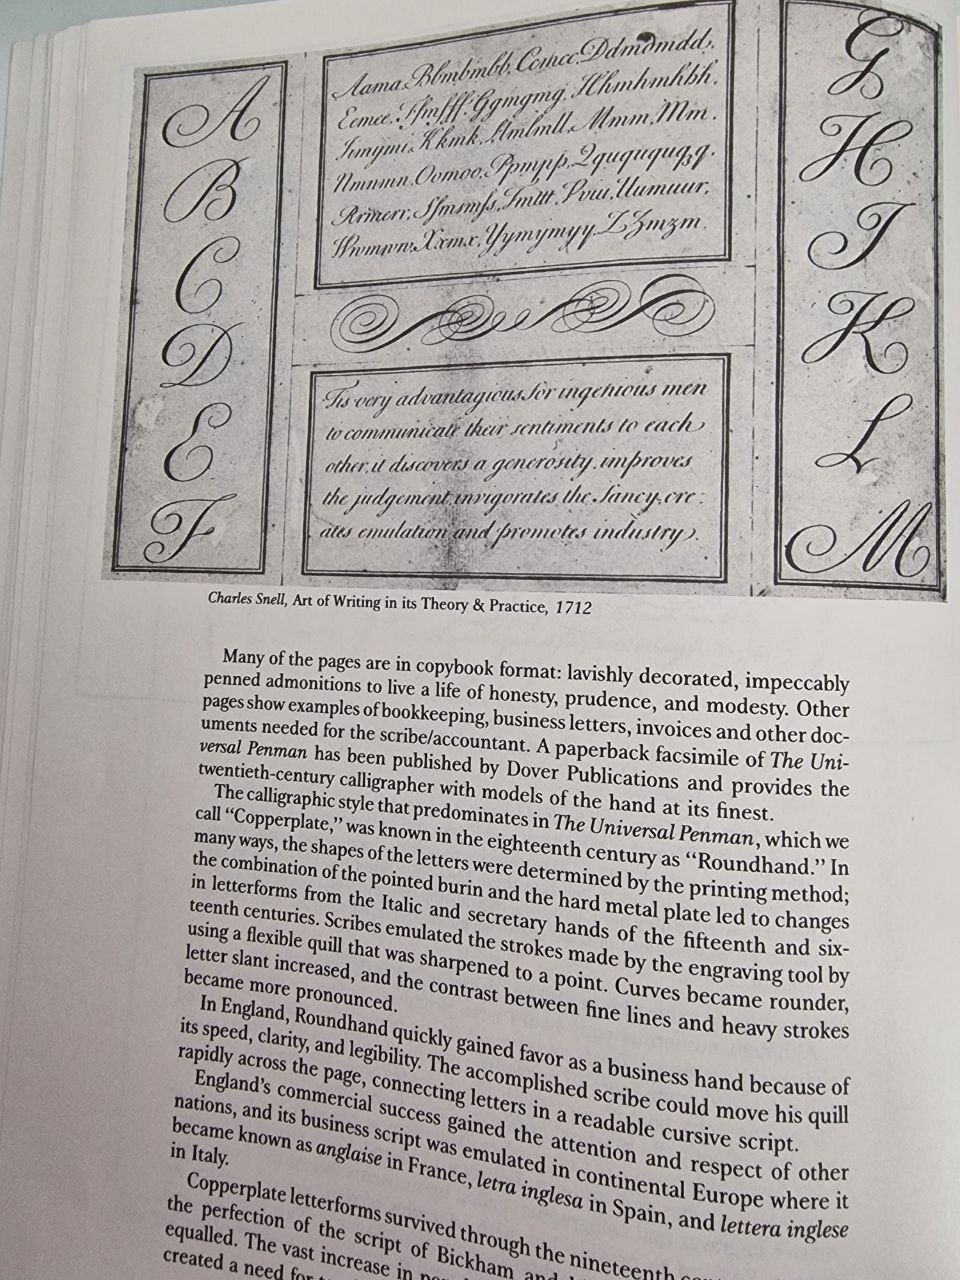 A
B
C
D
E
F
Aama. Bbmbmbb. Ccmcc. Ddmdmdd.
Eemee. Ffmfff. Ggmgmg. Hhmhmhhh.
Kkmk. Mmm. Mm.
Nmnmn. Oomoo. Ppmpp. Qququququq.
Rrmrerr. Sfsmsmfs. Tmttt. Vvm. Uumuur.
Wwmww. Xxmx. Yymymyy. Z Zmzm.
Tis very advantagious for ingenious men
to communicate their sentiments to each
other, it discovers a generosity, improves
the judgement, invigorates the fancy, cre:
ates emulation and promotes industry.
G
H
I
K
L
M
Charles Snell, Art of Writing in its Theory & Practice, 1712
Many of the pages are in copybook format: lavishly decorated, impeccably
penned admonitions to live a life of honesty, prudence, and modesty. Other
pages show examples of bookkeeping, business letters, invoices and other doc-
uments needed for the scribe/accountant. A paperback facsimile of The Uni-
versal Penman has been published by Dover Publications and provides the
twentieth-century calligrapher with models of the hand at its finest.
The calligraphic style that predominates in The Universal Penman, which we
call “Copperplate,” was known in the eighteenth century as “Roundhand.” In
many ways, the shapes of the letters were determined by the printing method;
the combination of the pointed burin and the hard metal plate led to changes
in letterforms from the Italic and secretary hands of the fifteenth and six-
teenth centuries. Scribes emulated the strokes made by the engraving tool by
using a flexible quill that was sharpened to a point. Curves became rounder,
letter slant increased, and the contrast between fine lines and heavy strokes
became more pronounced.
In England, Roundhand quickly gained favor as a business hand because of
its speed, clarity, and legibility. The accomplished scribe could move his quill
rapidly across the page, connecting letters in a readable cursive script.
England’s commercial success gained the attention and respect of other
nations, and its business script was emulated in continental Europe where it
became known as anglaise in France, letra inglesa in Spain, and lettera inglese
in Italy.
Copperplate letterforms survived through the nineteenth
the perfection of the script of Bickham and
equalled. The vast increase in
created a need for